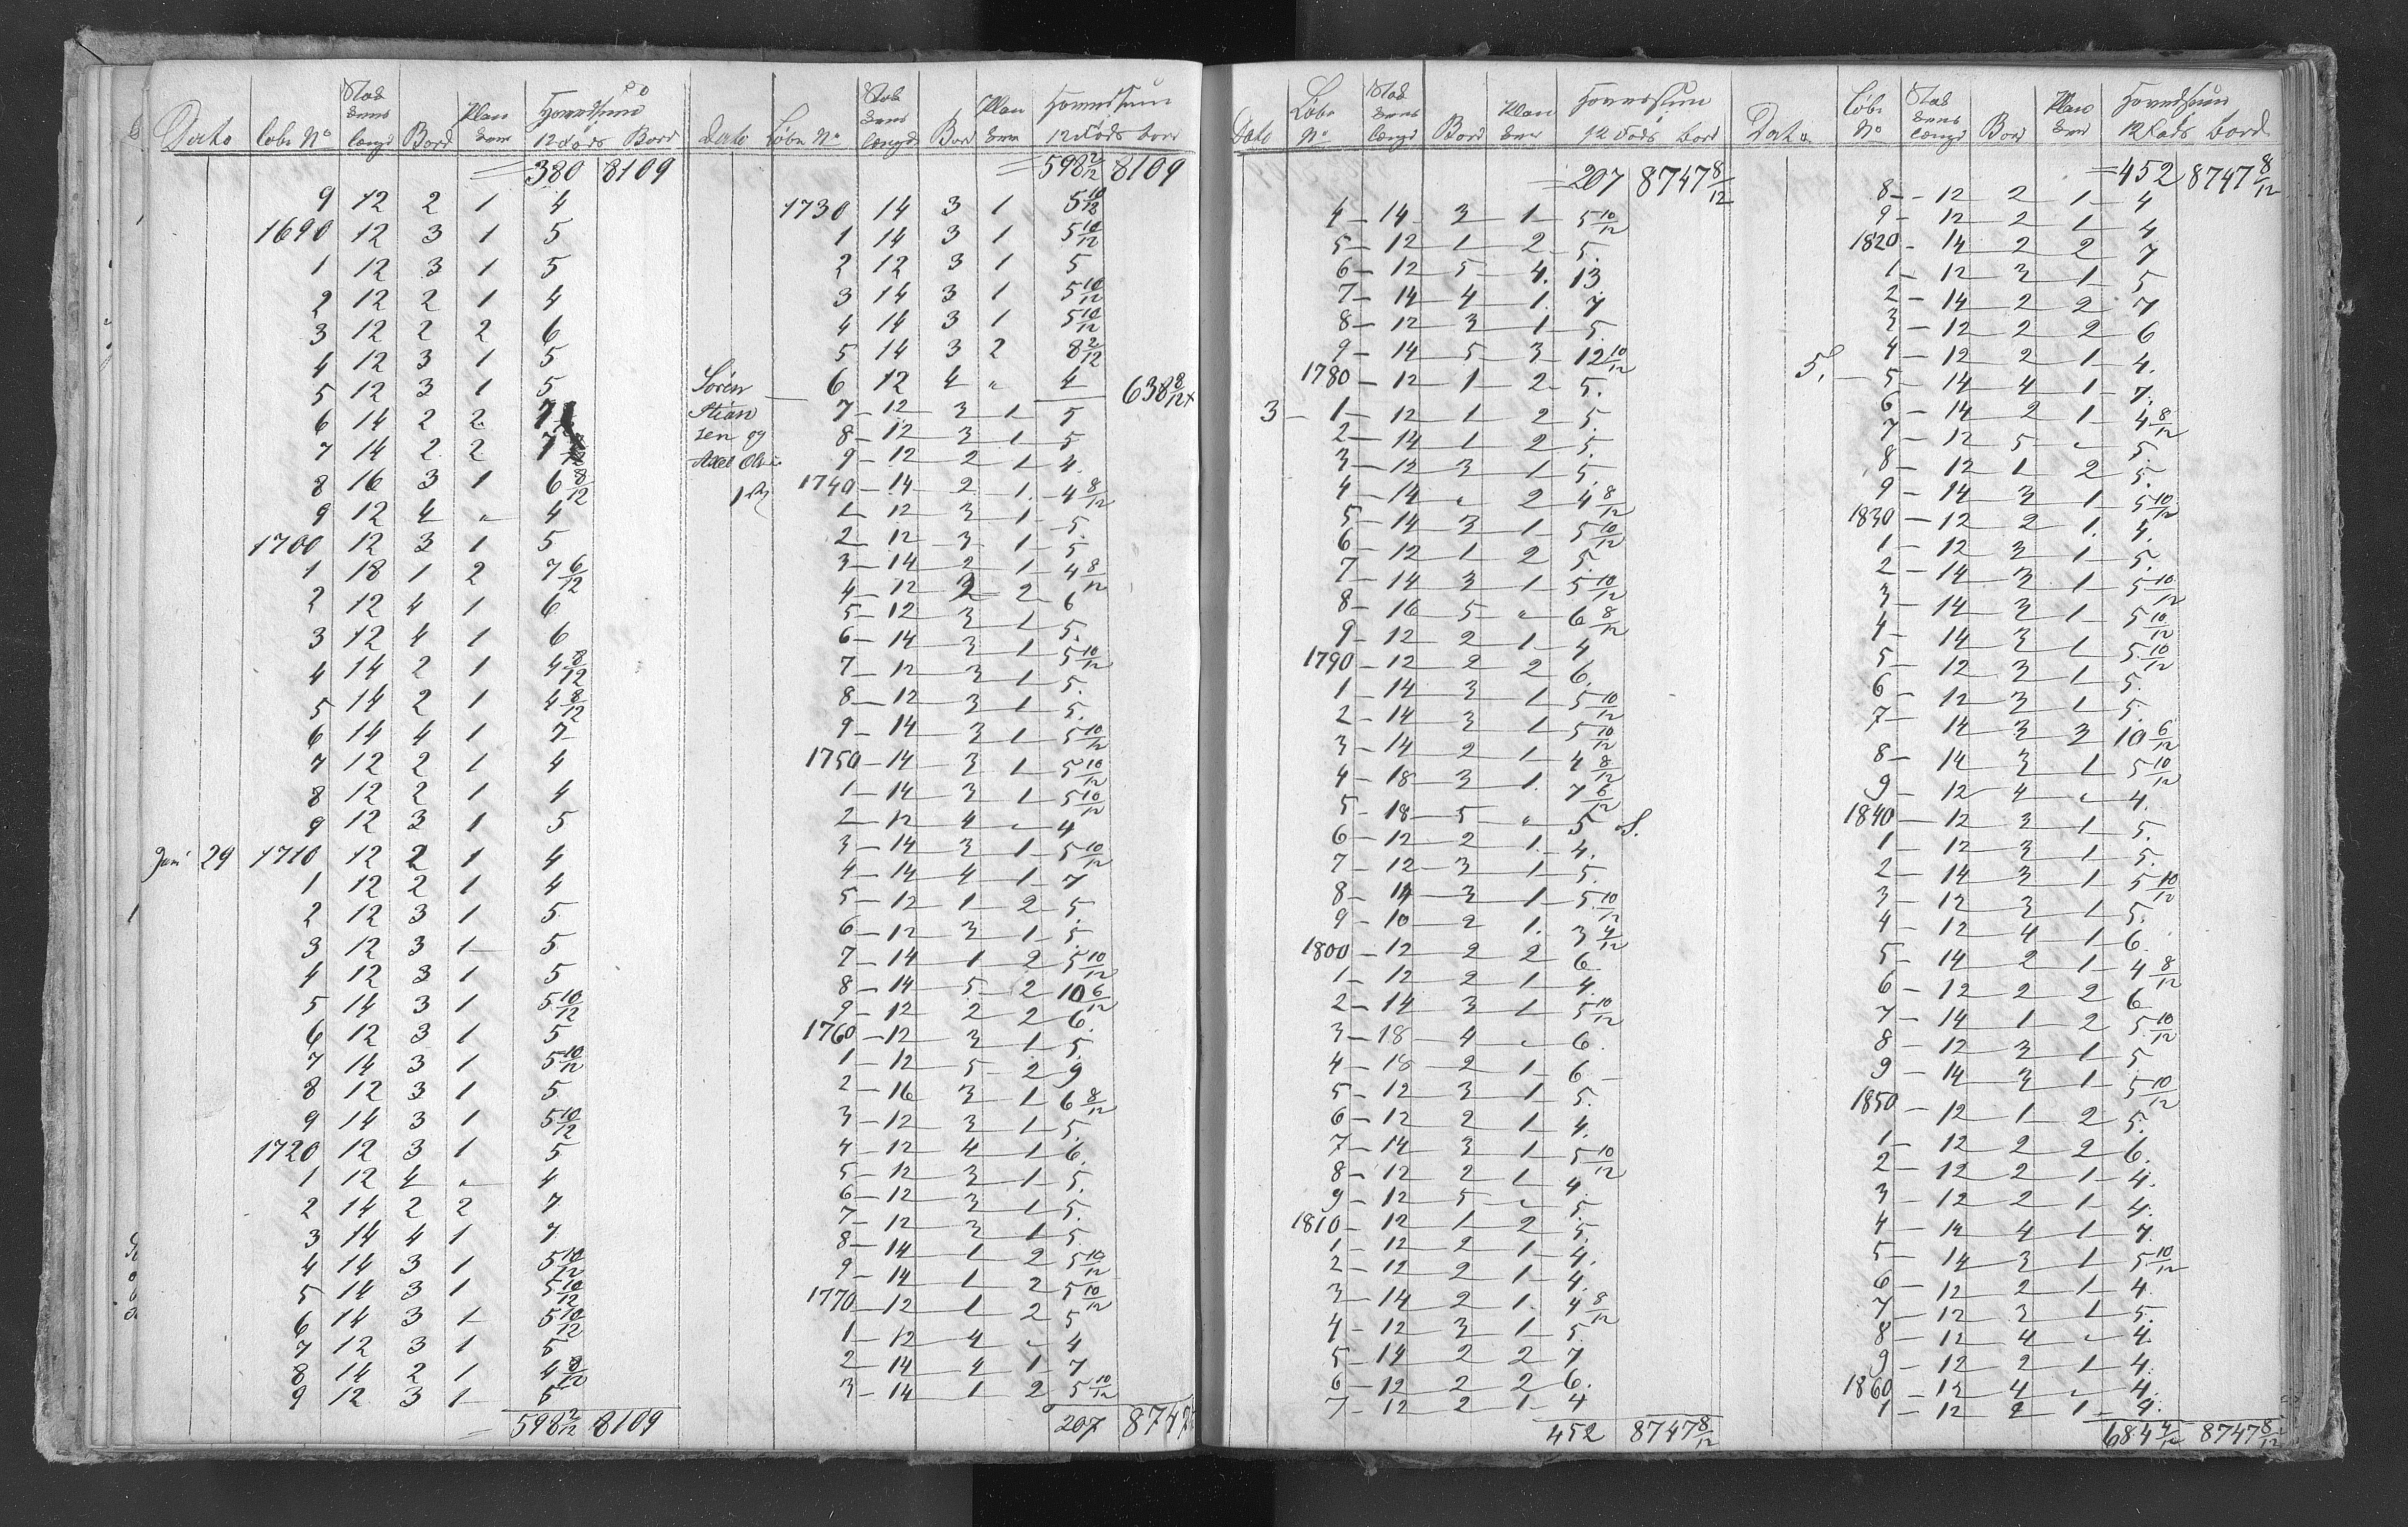 Dato Løbe No Stok kens længd Bord Plan ker Hovedsum 12 Fods Bord
= 380 8109
9 12 2 1 4
1690 12 3 1 5
1 12 3 1 5
2 12 2 1 4
3 12 2 2 6
4 12 3 1 5
5 12 3 1 5
6 14 2 2 7
7 14 2 2 7
8 16 3 1 6 8/12
9 12 4 " 4
1700 12 3 1 5
1 18 1 2 7 6/12
2 12 4 1 6
3 12 4 1 6
4 14 2 1 4 8/12
5 14 2 1 4 8/12
6 14 4 1 7
7 12 2 1 4
8 12 2 1 4
9 12 3 1 5
Juni 29 1710 12 2 1 4
1 12 2 1 4
2 12 3 1 5
3 12 3 1 5
4 12 3 1 5
5 14 3 1 5 10/12
6 12 3 1 5
7 14 3 1 5 10/12
8 12 3 1 5
9 14 3 1 5 10/12
1720 12 3 1 5
1 12 4 " 4
2 14 2 2 7
3 14 4 1 7
4 14 3 1 5 10/12
5 14 3 1 5 10/12
6 14 3 1 5 10/12
7 12 3 1 5
8 14 2 1 4 8/12
9 12 3 1 5
= 598 2/12 8109
Dato Løbe No Stok kens længd Bord Plan ker Hovedsum 12 Fods bord
= 598 2/12 8109
1730 14 3 1 5 10/12
1 14 3 1 5 10/12
2 12 3 1 5
3 14 3 1 5 10/12
4 14 3 1 5 10/12
5 14 3 2 8 2/12
Søren 6 12 4 " 4 638 8/12 x
Stian 7 12 3 1 5
sen og 8 12 3 1 5
Axel 9 12 2 1 4
1740 14 2 1 4 8/12
1 12 3 1 5.
2 12 3 1 5
3 14 2 1 4 8/12
4 12 2 2 6
5 12 3 1 5.
6 14 3 1 5 10/12
7 12 3 1 5.
8 12 3 1 5.
9 14 3 1 5 10/12
1750 14 3 1 5 10/12
1 14 3 1 5 10/12
2 12 4 " 4
3 14 3 1 5 10/12
4 14 4 1 7
5 12 1 2 5.
6 12 3 1 5.
7 14 1 2 5 10/12
8 14 5 2 10 6/12
9 12 2 2 6.
1760 12 3 1 5.
1 12 5 2 9
2 16 3 1 6 8/12
3 12 3 1 5.
4 12 4 1 6.
5 12 3 1 5.
6 12 3 1 5.
7 12 3 1 5.
8 14 1 2 5 10/12
9 14 1 2 5 10/12
1770 12 1 2 5
1 12 4 " 4
2 14 4 1 7
3 14 1 2 5 10/12
207 8747
Dato Løbe No Stok kens længd Bord Plan ker Hovedsum 12 Fods bord
= 207 8747 8/12
4 14 3 1 5 10/12
5 12 1 2 5.
6 12 5 4. 13
7 14 4 1. 7
8 12 3 1 5.
9 14 5 3 12 10/12
1780 12 1 2 5.
3 1 12 1 2 5.
2 14 1 2 5.
3 12 3 1 5.
4 14 " 2 4 8/12
5 14 3 1 5 10/12
6 12 1 2 5.
7 14 3 1 5 10/12
8 16 5 " 6 8/12
9 12 2 1 4
1790 12 2 2 6.
1 14 3 1 5 10/12
2 14 3 1 5 10/12
3 14 2 1 4 8/12
4 18 3 1. 7 6/12
5 18 5 " 5 S.
6 12 2 1. 4.
7 12 3 1 5.
8 14 3 1 5 10/12
9 10 2 1. 3 4/12
1800 12 2 2 6
1 12 2 1 4.
2 14 3 1 5 10/12
3 18 4 " 6.
4 18 2 1 6
5 12 3 1 5.
6 12 2 1 4.
7 14 3 1 5 10/12
8 12 2 1 4.
9 12 5 " 5.
1810 12 1 2 5.
1 12 2 1 4.
2 12 2 1 4.
3 14 2 1. 4 8/12
4 12 3 1 5.
5 14 2 2 7
6 12 2 2 6.
7 12 2 1 4
452 8747 8/12
Dato Løbe No Stok kens længd Bord Plan ker Hovedsum 12 Fods bord
= 452 8747 8/12
8 12 2 1 4
9 12 2 1 4
1820 14 2 2 7
1 12 3 1 5
2 14 2 2 7
3 12 2 2 6
4 12 2 1 4.
5. 5 14 4 1 7.
6 14 2 1 4 8/12
7 12 5 " 5.
8 12 1 2 5.
9 14 3 1 5 10/12
1830 12 2 1. 4.
1 12 3 1 5.
2 14 3 1 5 10/12
3 14 3 1 5 10/12
4 14 3 1 5 10/12
5 12 3 1 5.
6 12 3 1 5.
7 14 3 3 10 6/12
8 14 3 1 5 10/12
9 12 4 " 4.
1840 12 3 1 5.
1 12 3 1 5.
2 14 3 1 5 10/12
3 12 3 1 5.
4 12 4 1 6
5 14 2 1 4 8/12
6 12 2 2 6
7 14 1 2 5 10/12
8 12 3 1 5
9 14 3 1 5 10/12
1850 12 1 2 5.
1 12 2 2 6.
2 12 2 1 4.
3 12 2 1 4.
4 14 4 1 7.
5 14 3 1 5 10/12
6 12 2 1 4
7 12 3 1 5.
8 12 4 " 4
9 12 2 1 4.
1860 12 4 " 4.
1 12 2 1 4.
684 4/12 8747 8/12